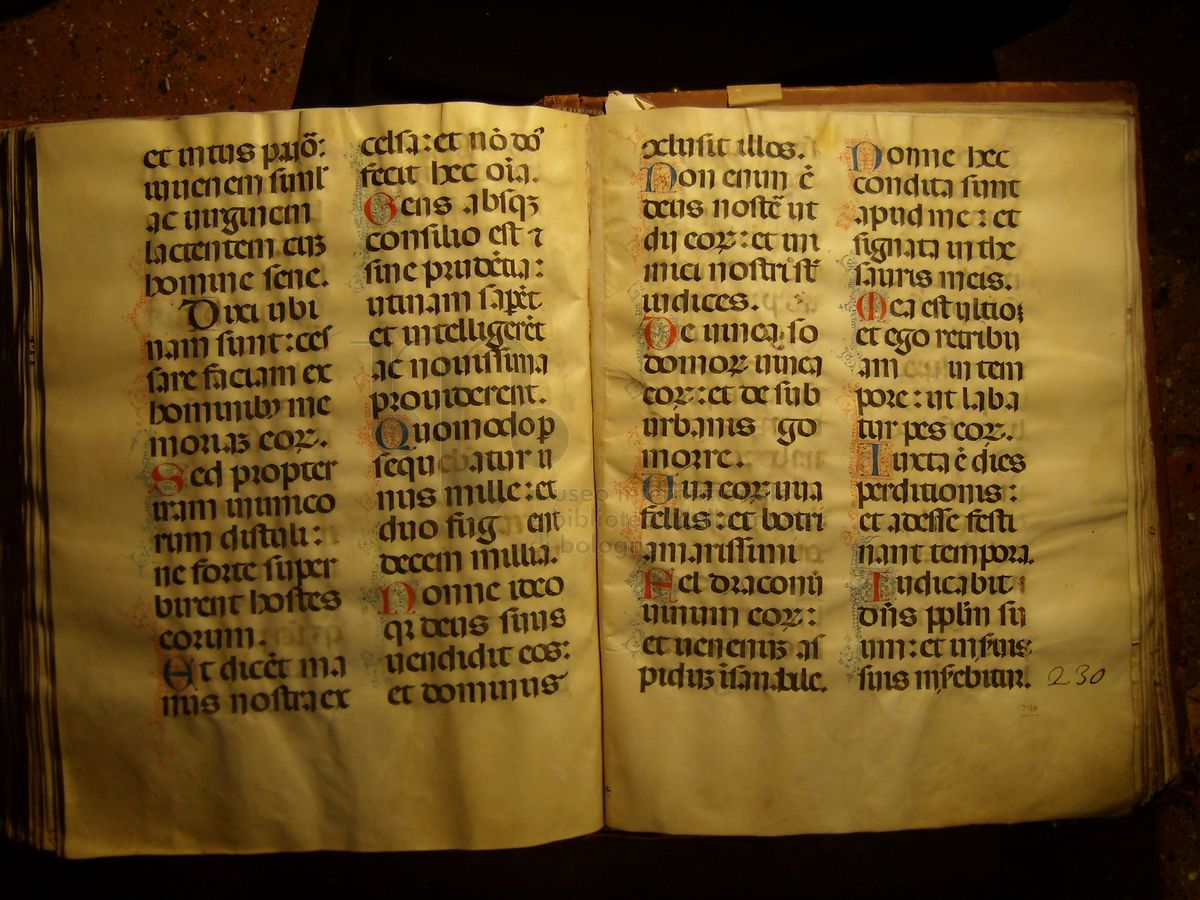 et intus pauõ:
iuuenem siml'
ac uirginem
lactentem cuꝫ
homine sene.
Dixi ubi
nam sunt: ces
sare faciam ex
hominibꝰ me
moriaꝫ eoꝝ.
Sed propter
iram inimico
rum distuli:
ne forte super
birent hostes
eorum.
Et dicẽt ma
nus nostra ex
celsa: et nõ dõ
fecit hec oĩa.
Gens absqꝫ
consilio est ⁊
sine prudẽtia:
utinam sapẽt
et intelligerẽt
ac nouissima
prouiderent.
Quomodo ꝑ
sequebatur u
nus mille: et
duo fugent
decem millia.
Nonne ideo
qꝛ deus suus
uendidit eos:
et dominus
clusit illos.
Non enim ẽ
deus nostẽ ut
dij eoꝝ: et ini
mici nostri sũt
iudices.
De uinea so
domoꝝ uinea
eoꝝ: et de sub
urbanis go
morre.
Uua eoꝝ uua
fellis: et botri
amarissimi
Fel draconũ
uinum eoꝝ:
et uenenuꝫ as
piduꝫ ĩsanabile.
Nonne hec
condita sunt
apud me: et
signata in the
sauris meis.
Mea est ultio
et ego retribu
am in tem
pore: ut laba
tur pes eoꝝ.
Iuxta ẽ dies
perditionis:
et adesse festi
nant tempora.
Iudicabit
dñs pplm su
um: et in suis
suis misebitur.
230
230
museo internazionale
biblioteca della
di bologna